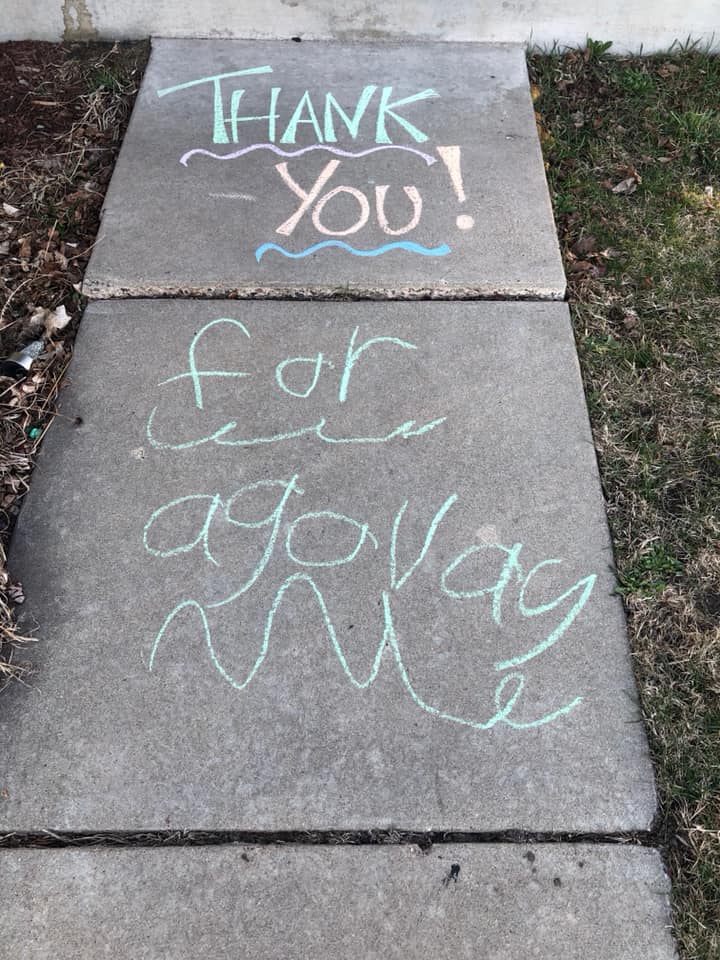 THANK
YOU!
for
agovay